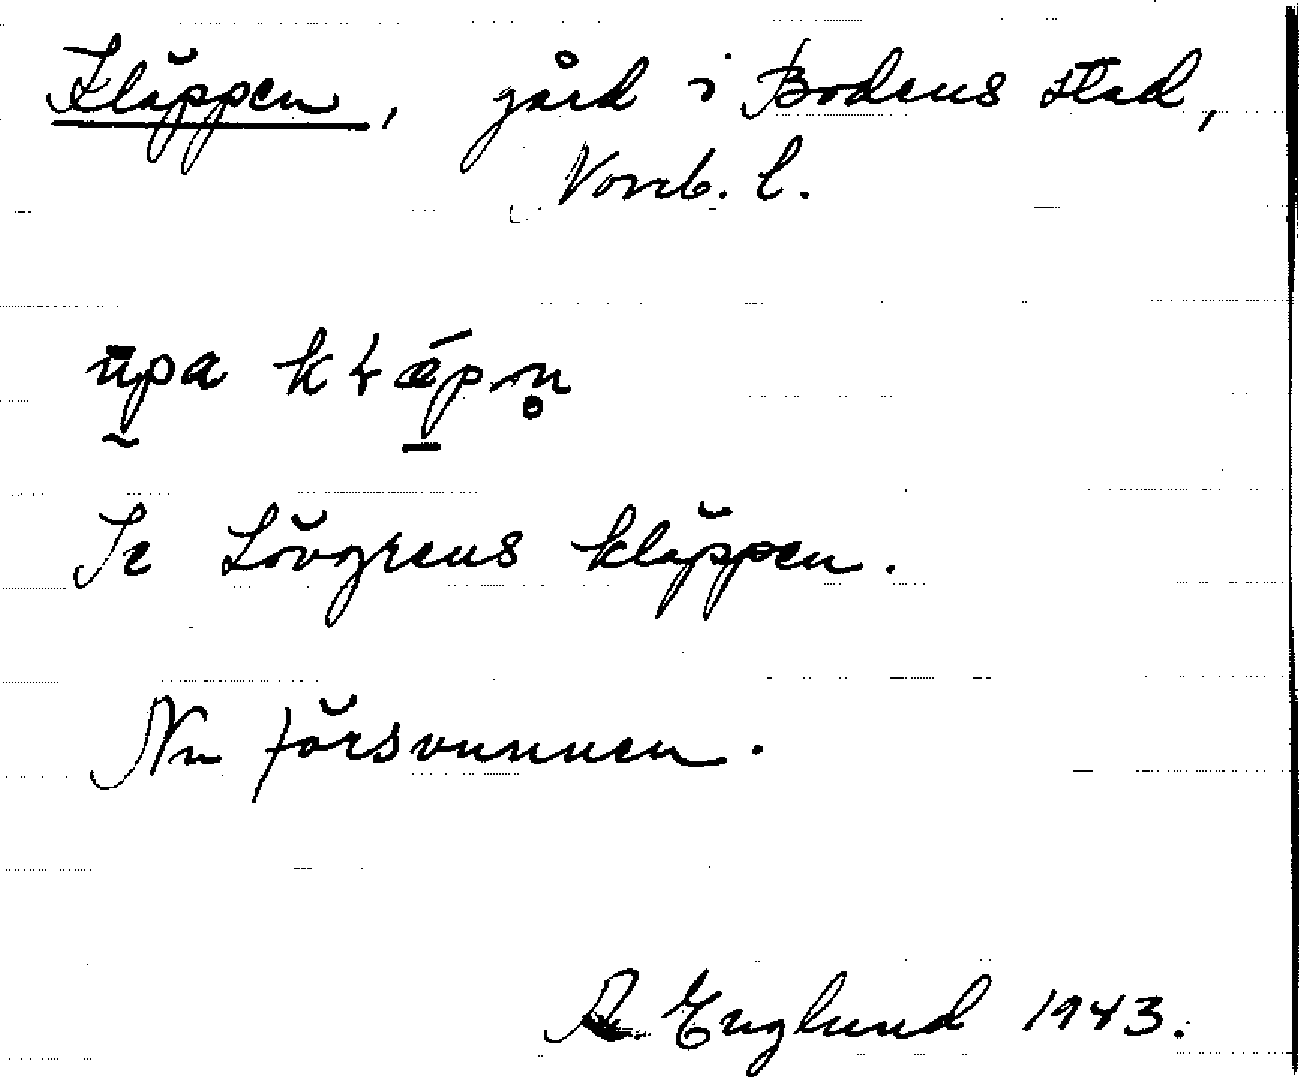 Kläppen, gård i Bodens stad,
Norrb. l.
upa kłǽpn̥
Se Lövgrens kläppen.
Nu försvunnen.
R Englund 1943.